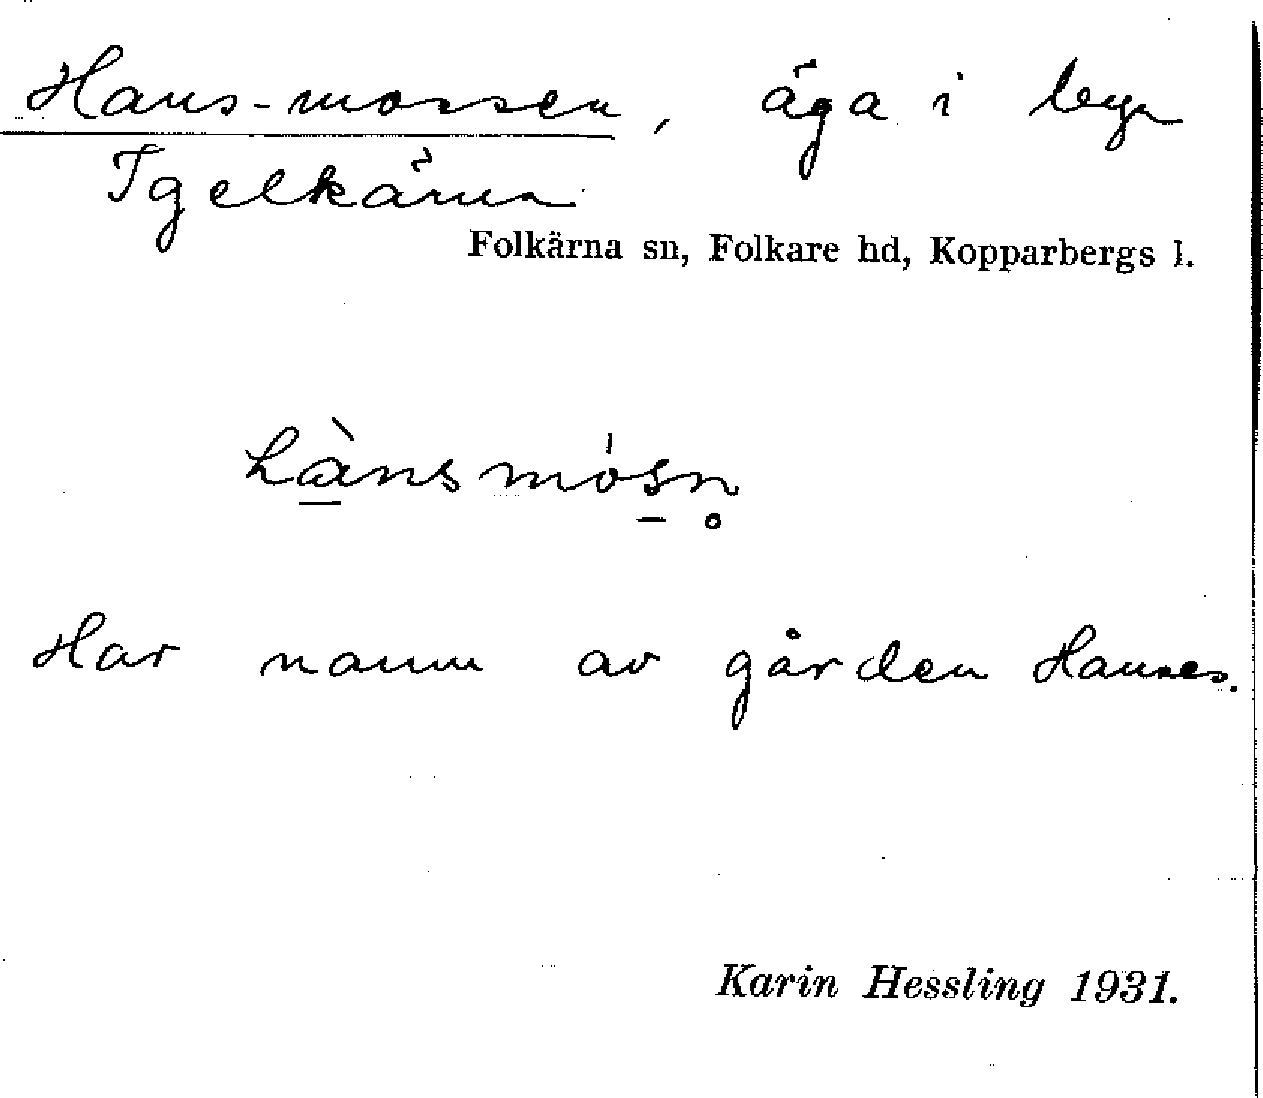 Hans-mossen, äga i byn
Igelkärna
Folkärna sn, Folkare hd, Kopparbergs l.
hànsmósn̥
Har namn av gården Hanses.
Karin Hessling 1931.